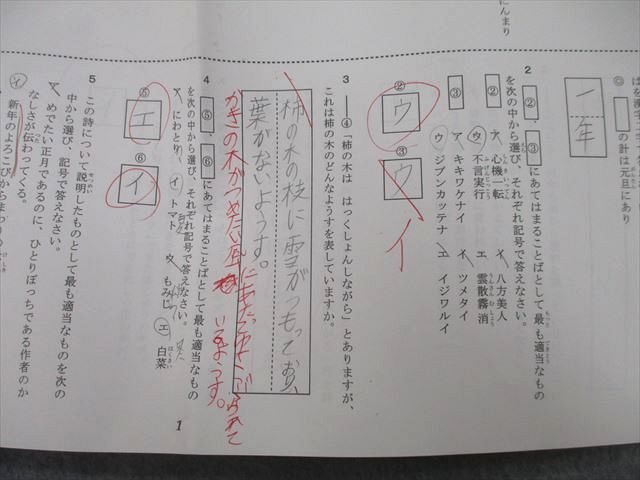 んにまり
の計は元旦にあり
一年
2 ②、③にあてはまることばとして最も適当なもの
を次の中から選び、それぞれ記号で答えなさい。
② ア、心機一転 イ 八方美人
ウ 不言実行 エ 雲散霧消
③ ア、キキワケナイ イ ツメタイ
ウ ジブンカッテナ エ イジワルイ
② ウ ③ ウ
イ
3 ――④「柿の木は はっくしょんしながら」とありますが、
これは柿の木のどんなようすを表していますか。
柿の木の枝に雪がつもってお、
葉がないようす。
かきの木がつめたい風
いるようす。
4 ⑤、⑥にあてはまることばとして最も適当なもの
を次の中から選び、それぞれ記号で答えなさい。
ア、にわとり、 イ トマト ウ、もみじ エ 白菜
⑤ エ ⑥ イ
5 この詩について説明したものとして最も適当なものを次の
中から選び、記号で答えなさい。
ア、めでたい正月であるのに、ひとりぼっちである作者のか
なしさが伝わってくる。
イ 新年のよろこび
1